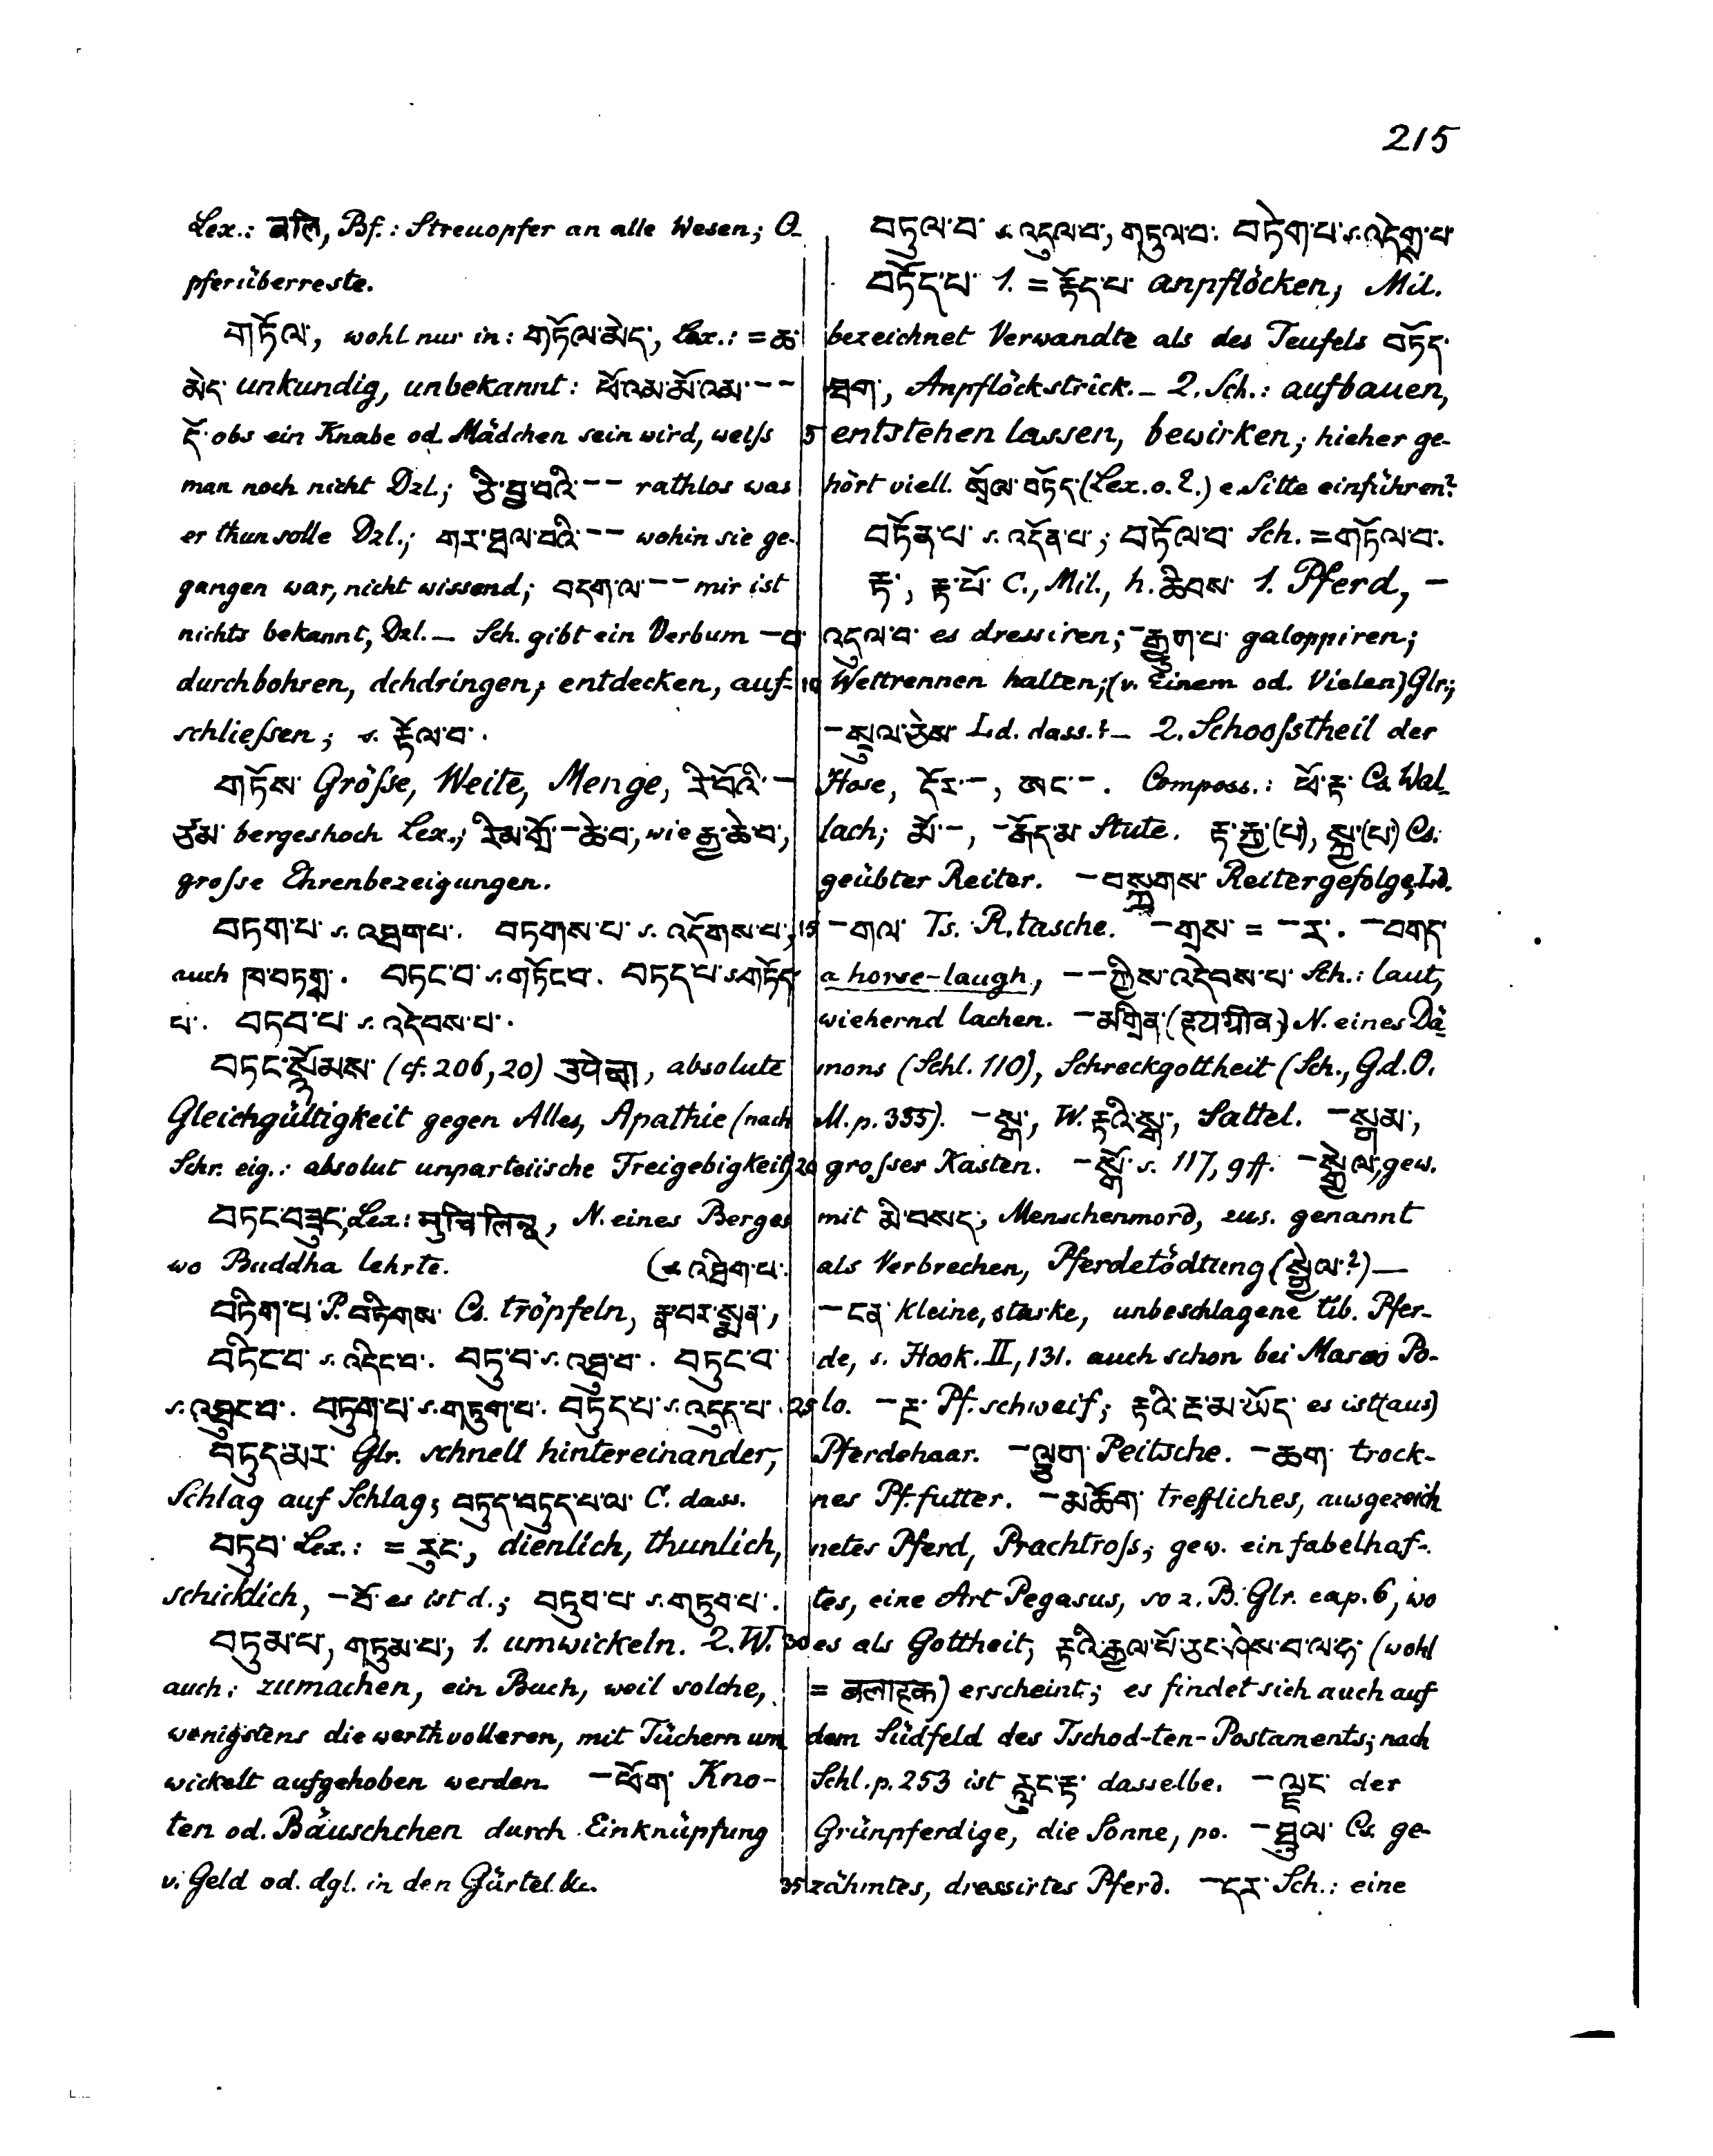 215
Lex.: बलि, Bf.: Streuopfer an alle Wesen; O-
pferüberreste.
གཏོལ་, wohl nur in: གཏོལ་མེད་, Lex.: = ཆ་
མེད་ unkundig, unbekannt: ཕོའམ་མོའམ་ – –
ངོ་ obs ein Knabe od. Mädchen sein wird, weiſs
man noch nicht Dzl.; ཅི་བྱ་བའི་ – – rathlos was
er thun solle Dzl.; གར་ཐལ་བའི་ – – wohin sie ge-
gangen war, nicht wissend; བདག་ལ་ – – mir ist
nichts bekannt, Dzl. – Sch. gibt ein Verbum – བ་
durchbohren, dchdringen; entdecken, auf-
schlieſsen; s. རྟོལ་བ་.
གཏོས་ Gröſse, Weite, Menge, རི་བོའི་ –
ཙམ་ bergeshoch Lex.; རིམ་གྲོ་ – ཆེ་བ་, wie རྒྱ་ཆེ་བ་,
groſse Ehrenbezeigungen.
བཏག་པ་ s. འཐག་པ་. བཏགས་པ་ s. འདོགས་པ་;
auch ཁ་བཏགས་. བཏང་བ་ s. གཏོང་བ་. བཏད་པ་ s. གཏོད་
པ་. བཏབ་པ་ s. འདེབས་པ་.
བཏང་སྙོམས་ (cf. 206, 20) उपेक्षा, absolute
Gleichgültigkeit gegen Alles, Apathie (nach
Schr. eig.: absolut unparteiische Freigebigkeit)
བཏང་བཟུང་, Lex: मुचिलिन्द, N. eines Berges
wo Buddha lehrte. (s. འཐིག་པ་.
བཏིག་པ་ P. བཏིགས་ Cs. tröpfeln, རྣ་བར་སྨན་,
བཏིང་བ་ s. འདིང་བ་. བཏུ་བ་ s. འཐུ་བ་. བཏུང་བ་
s. འཐུང་བ་. བཏུག་པ་ s. གཏུག་པ་. བཏུད་པ་ s. འདུད་པ་.
བཏུད་མར་ Glr. schnell hintereinander,
Schlag auf Schlag; བཏུད་བཏུད་པ་ལ་ C. dass.
བཏུབ་ Lex.: = རུང་, dienlich, thunlich,
schicklich, – བོ་ es ist d.; བཏུབ་པ་ s. གཏུབ་པ་.
བཏུམ་པ་, གཏུམ་པ་, 1. umwickeln. 2. W.
auch: zumachen, ein Buch, weil solche,
wenigstens die werthvolleren, mit Tüchern um
wickelt aufgehoben werden. – ཕོག་ Kno-
ten od. Bäuschchen durch Einknüpfung
v. Geld od. dgl. in den Gürtel &c.
བཏུལ་བ་ s. འདུལ་བ་, གཏུལ་བ་. བཏེག་པ་ s. འདེགས་པ་
བཏོད་པ་ 1. = རྟོད་པ་ anpflöcken; Mil.
bezeichnet Verwandte als des Teufels བཏོད་
ཐག་, Anpflöckstrick. – 2. Sch.: aufbauen,
5 entstehen lassen, bewirken; hieher ge-
hört viell. སྲོལ་བཏོད་ (Lex. o. E.) e. Sitte einführen?
བཏོན་པ་ s. འདོན་པ་; བཏོལ་བ་ Sch. = གཏོལ་བ་.
རྟ་, རྟ་པོ་ C., Mil., h. ཆིབས་ 1. Pferd, –
འདུལ་བ་ es dressiren; – རྒྱུག་པ་ galoppiren;
10 Wettrennen halten; (v. Einem od. Vielen) Glr.;
– སྣུལ་ཅེས་ Ld. dass.? – 2. Schooſstheil der
Hose, དོར་ –, ཨང་ –. Composs.: ཕོ་རྟ་ Cs. Wal-
lach; མོ་ –, – རྒོད་མ་ Stute. རྟ་རྐྱ་(པ་), སྐྱ་(པ་) Cs.
geübter Reiter. – བསྐྲགས་ Reitergefolge, Ld.
15 – གལ་ Ts. R.tasche. – གྲས་ = – ར་. – བགད་
a horse-laugh, – – ཀྱིས་འདེབས་པ་ Sch.: laut,
wiehernd lachen. – མགྲིན་ (हयग्रीव) N. eines Dä-
mons (Schl. 110), Schreckgottheit (Sch., G.d.O.
M. p. 355). – སྒ་, W. རྟའི་སྒ་, Sattel. – སྒམ་,
20 groſser Kasten. – སྒོ་ s. 117, 9 ff. – སྒྱེལ་, gew.
mit མི་བསད་, Menschenmord, zus. genannt
als Verbrechen, Pferdetödtung (སྒྱེལ་?) –
– ངན་ kleine, starke, unbeschlagene tib. Pfer-
de, s. Hook. II, 131. auch schon bei Marco Po-
25 lo. – རྔ་ Pf. schweif; རྟའི་རྔ་མ་ཡོད་ es ist (aus)
Pferdehaar. – ལྕག་ Peitsche. – ཆག་ trock-
nes Pf. futter. – མཆོག་ treffliches, ausgezeich
netes Pferd, Prachtroſs; gew. ein fabelhaf-
tes, eine Art Pegasus, so z. B. Glr. cap. 6, wo
30 es als Gottheit; རྟའི་རྒྱལ་པོ་ཅང་ཤེས་བ་ལ་ཧ་ (wohl
= बलाहक) erscheint; es findet sich auch auf
dem Südfeld des Tschod-ten-Postaments; nach
Schl. p. 253 ist རླུང་རྟ་ dasselbe. – ལྗང་ der
Grünpferdige, die Sonne, po. – ཐུལ་ Cs. ge-
35 zähmtes, dressirtes Pferd. – དར་ Sch.: eine